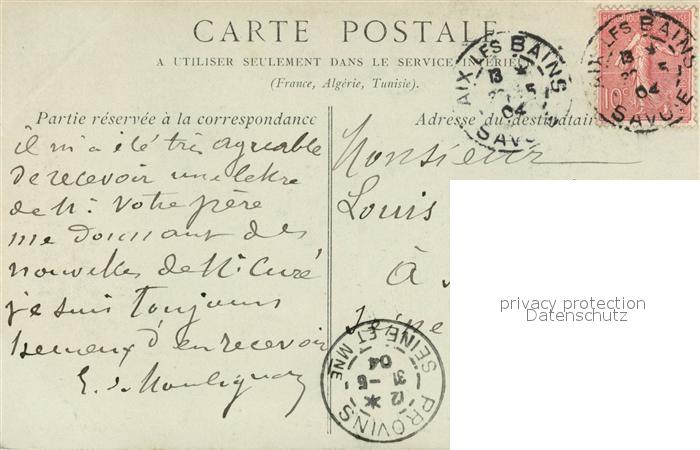 CARTE POSTALE
A UTILISER SEULEMENT DANS LE SERVICE INTÉRIEUR
(France, Algérie, Tunisie).
Partie réservée à la correspondance
Adresse du destinataire
il m'a été très agréable
de recevoir une lettre
de Mr Votre père
me donnant des
nouvelles de Mr Curé
je suis toujours
heureux d'en recevoir
Monsieur
Louis
à
AIX-LES-BAINS
13
5
04
SAVOIE
AIX-LES-BAINS
13
5
04
SAVOIE
10c
PROVINS
12
31-5
04
SEINE ET MNE
privacy protection
Datenschutz